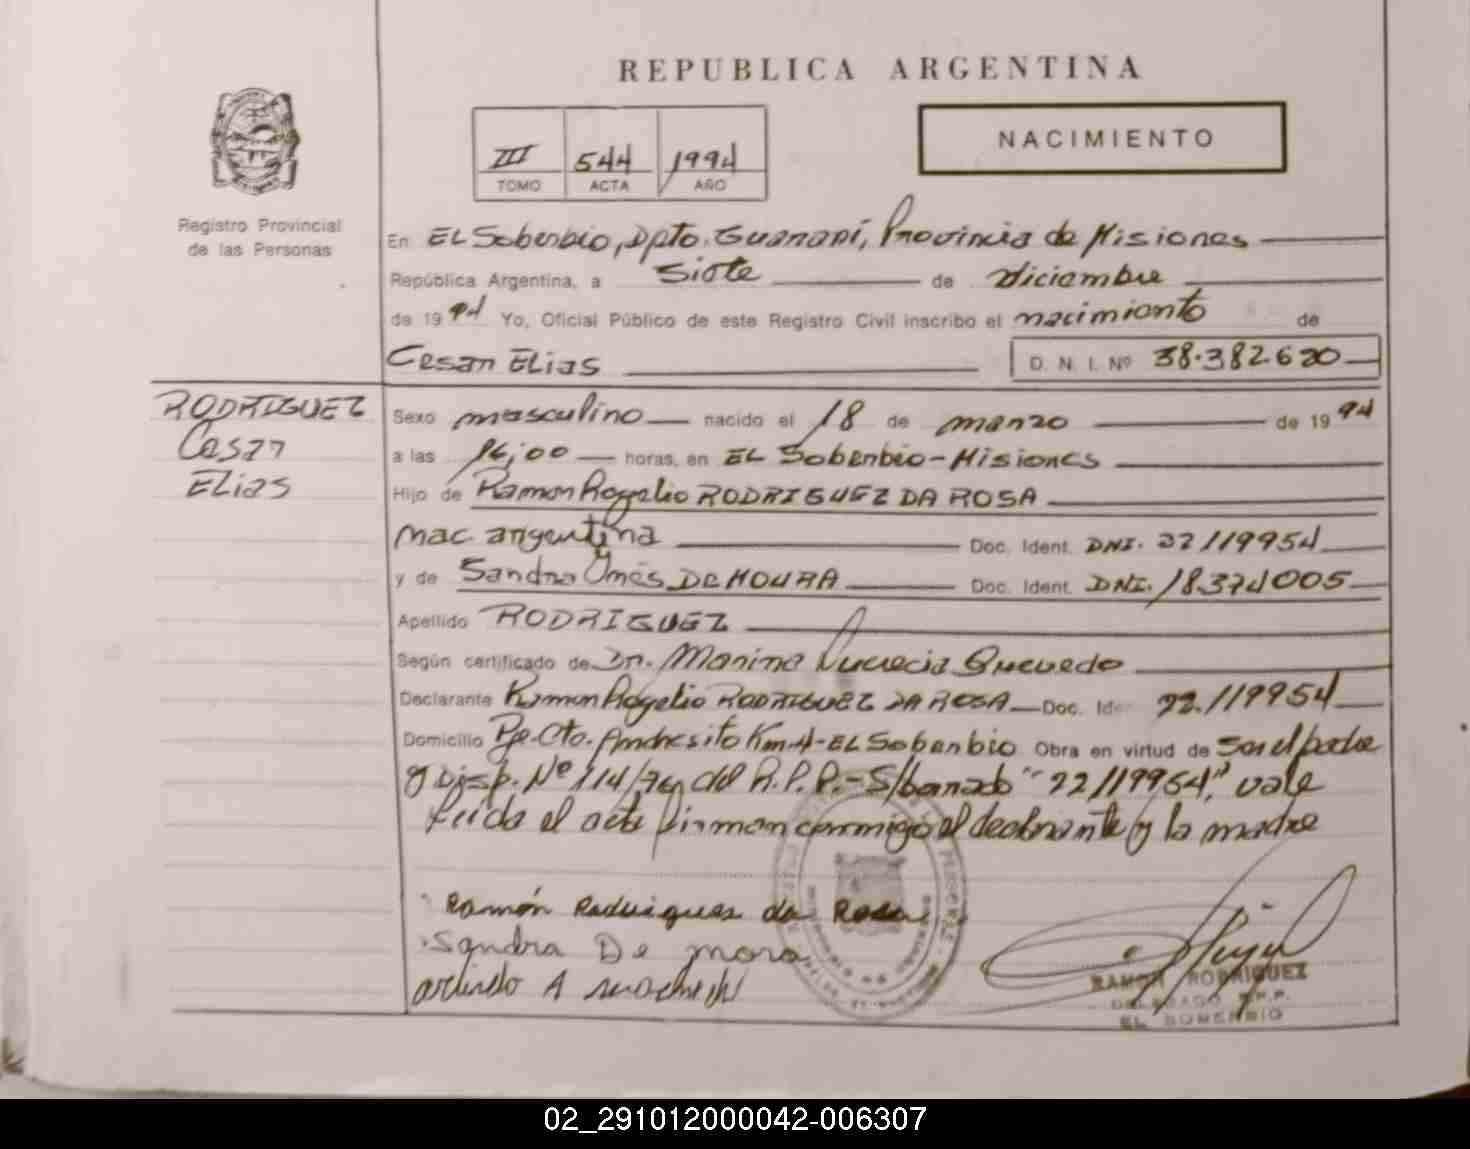 REPUBLICA ARGENTINA
NACIMIENTO
III 544 1994
TOMO ACTA AÑO
Registro Provincial
de las Personas
En EL Soberbio, Dpto. Guaraní, Provincia de Misiones
República Argentina, a Siete de diciembre
de 1994 Yo, Oficial Público de este Registro Civil inscribo el nacimiento de
Cesar Elias D. N. I. Nº 38.382.620
RODRIGUEZ
Cesar
Elias
Sexo masculino nacido el 18 de marzo de 1994
a las 16,00 horas, en EL Soberbio - Misiones
Hijo de Ramon Rogelio RODRIGUEZ DA ROSA
nac. argentina Doc. Ident. DNI. 22/119954
y de Sandra Ines DE MOURA Doc. Ident. DNI. 18.374005
Apellido RODRIGUEZ
Según certificado de Dr. Marina Lucrecia Quevedo
Declarante Ramon Rogelio RODRIGUEZ DA ROSA Doc. Ide 22.119954
Domicilio Pje. Cto. Andresito Km.4-EL Soberbio Obra en virtud de ser el padre
y Disp. Nº 114/76 del R.P.P.- S/borrado "22/119954," vale
Leida el acta firman conmigo el declarante y la madre
Ramón Rodrigues da Rosa
Sandra De mora
arlindo A
RAMON RODRIGUEZ
DELEGADO R.P.P.
EL SOBERBIO
02_291012000042-006307